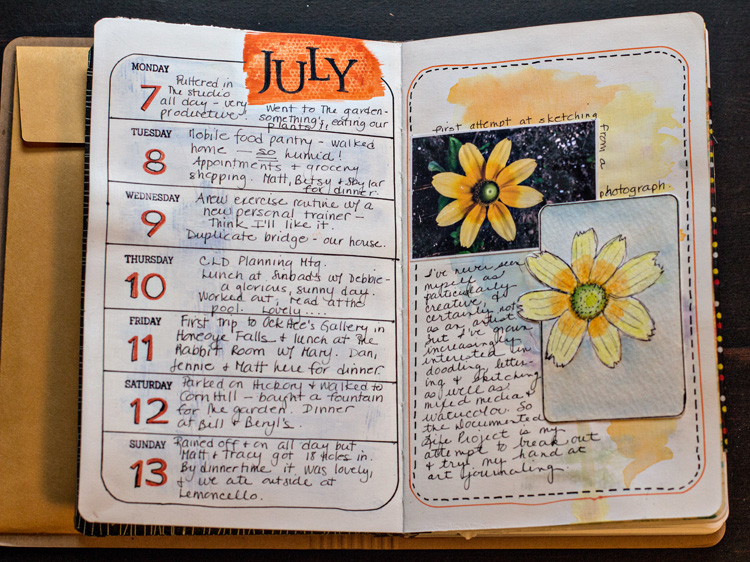 JULY
MONDAY
7
Puttered in
The studio
all day - very
productive!
Went to the garden-
something's eating our
plants!
TUESDAY
8
Mobile food pantry - walked
home - so humid!
Appointments & grocery
shopping. Matt, Betsy & Skylar
for dinner.
WEDNESDAY
9
A new exercise routine w/ a
new personal trainer -
Think I'll like it.
Duplicate bridge - our house.
THURSDAY
10
CLD Planning Mtg.
Lunch at Sinbad's w/ Debbie -
a glorious, sunny day.
Worked out, read at the
pool. Lovely....
FRIDAY
11
First trip to Gallery in
Honeoye Falls & lunch at the
Rabbit Room w/ Mary. Dan,
Jennie & Matt here for dinner.
SATURDAY
12
Parked on Hickory & walked to
Corn Hill - bought a fountain
for the garden. Dinner
at Bill & Beryl's.
SUNDAY
13
Rained off & on all day but
Matt & Tracy got 18 Holes in.
By dinnertime it was lovely,
& we ate outside at
Lemoncello.
First attempt at sketching
from a
photograph.
I've never seen
myself as
particularly
creative, &
certainly not
as an artist
but I've grown
increasingly
interested in
doodling, letter-
ing & sketching
as well as
mixed media &
watercolor. So
the Documented
Life Project is my
attempt to break out
& try my hand at
art journaling.